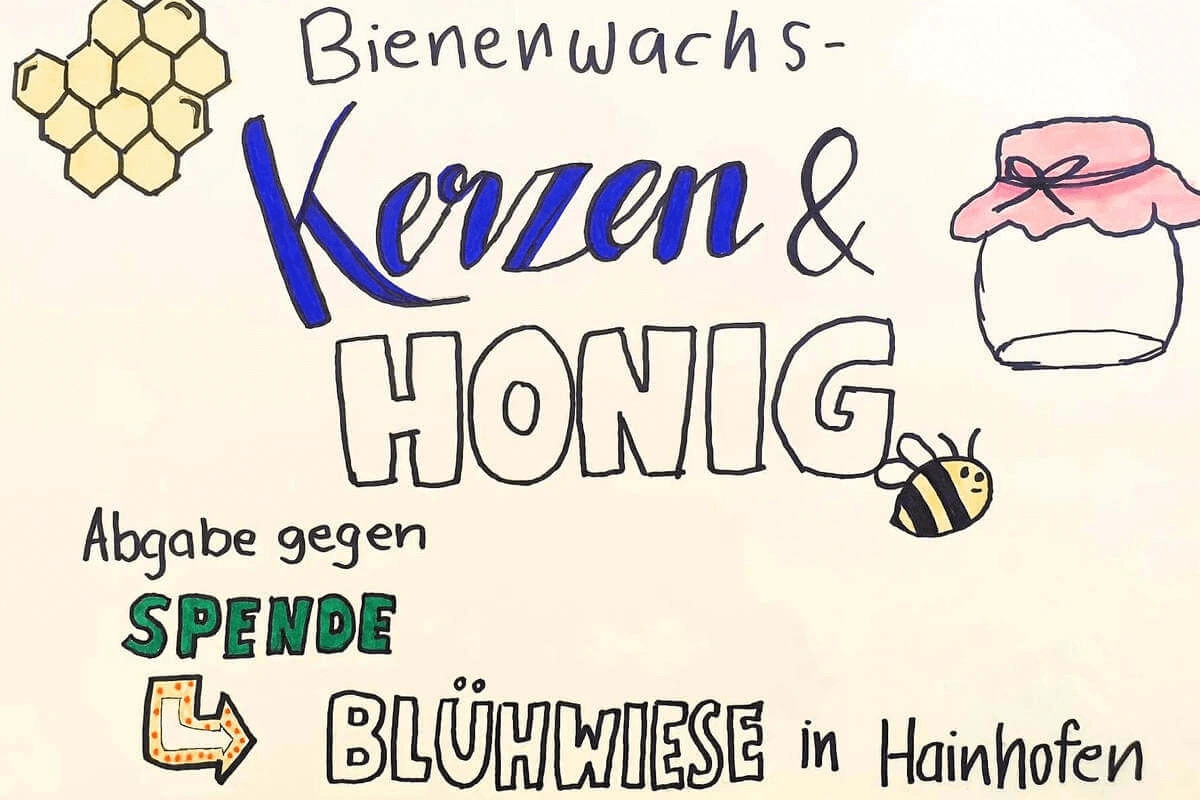 Bienenwachs-
Kerzen &
HONIG
Abgabe gegen
SPENDE
BLÜHWIESE in Hainhofen